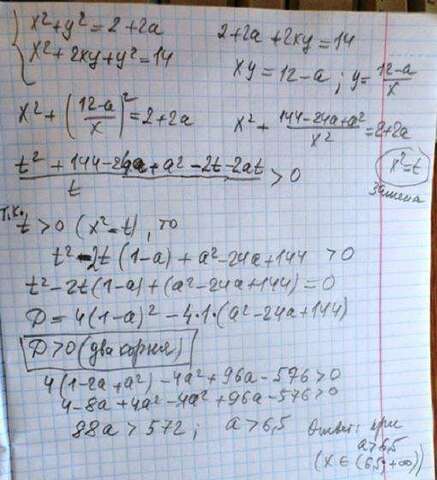 x² + y² = 2 + 2a
x² + 2xy + y² = 14
2 + 2a + 2xy = 14
xy = 12 - a ; y = (12-a)/x
x² + ((12-a)/x)² = 2 + 2a
x² + (144 - 24a + a²)/x² = 2 + 2a
(t² + 144 - 24a + a² - 2t - 2at)/t > 0
x² = t
замена
т.к. t > 0 (x² = t), то
t² - 2t (1-a) + a² - 24a + 144 > 0
t² - 2t(1-a) + (a² - 24a + 144) = 0
D = 4(1-a)² - 4·1·(a² - 24a + 144)
D > 0 (два корня)
4(1 - 2a + a²) - 4a² + 96a - 576 > 0
4 - 8a + 4a² - 4a² + 96a - 576 > 0
88a > 572 ; a > 6,5
Ответ: при
a > 6,5
(x ∈ (6,5; +∞))